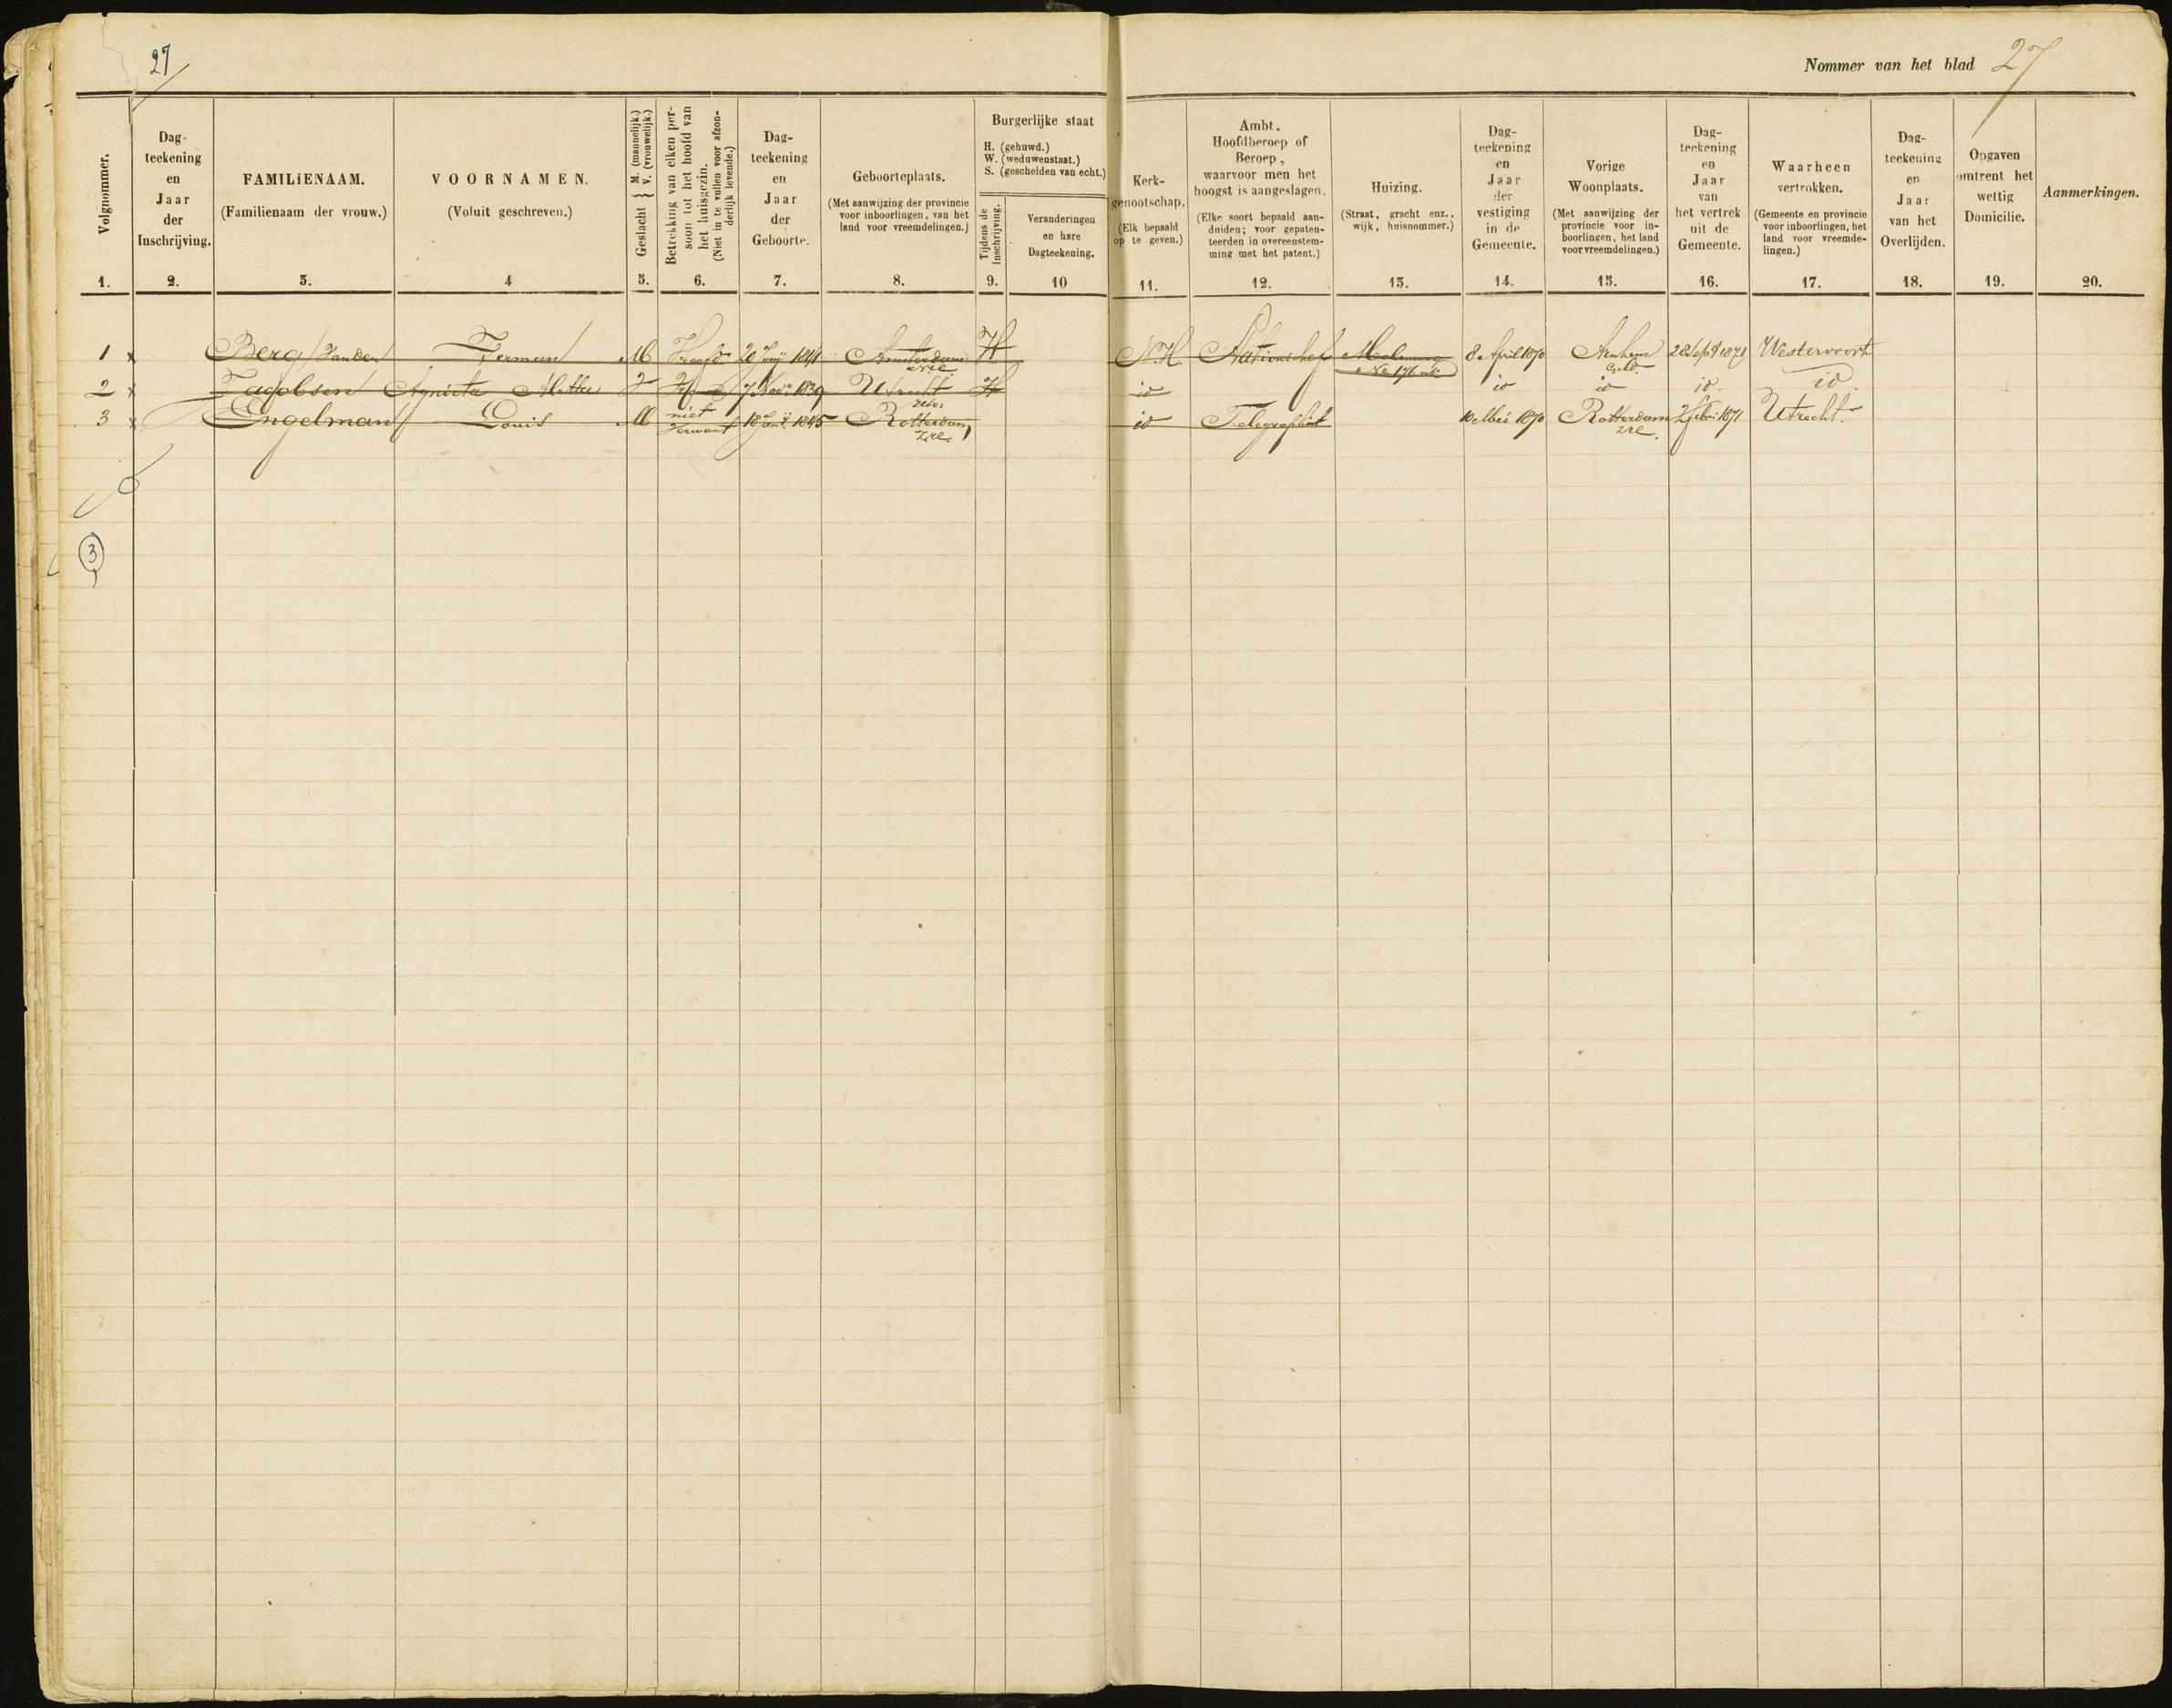 27
Nommer van het blad 27
Volgnommer.
Dag-
teekening
en
Jaar
der
Inschrijving.
FAMILIENAAM.
(Familienaam der vrouw.)
VOORNAMEN.
(Voluit geschreven.)
Geslacht } M. (mannelijk.)
V. (vrouwelijk.)
Betrekking van elken per-
soon tot het hoofd van
het huisgezin.
(Niet in te vullen voor afzon-
derlijk levende.)
Dag-
teekening
en
Jaar
der
Geboorte.
Geboorteplaats.
(Met aanwijzing der provincie
voor inboorlingen, van het
land voor vreemdelingen.)
Burgerlijke staat
H. (gehuwd.)
W. (weduwenstaat.)
S. (gescheiden van echt.)
Tijdens de
Inschrijving.
Veranderingen
en hare
Dagteekening.
Kerk-
genootschap.
(Elk bepaald
op te geven.)
Ambt,
Hoofdberoep of
Beroep,
waarvoor men het
hoogst is aangeslagen.
(Elke soort bepaald aan-
duiden; voor gepaten-
teerden in overeenstem-
ming met het patent.)
Huizing.
(Straat, gracht enz.,
wijk, huisnommer.)
Dag-
teekening
en
Jaar
der
vestiging
in de
Gemeente.
Vorige
Woonplaats.
(Met aanwijzing der
provincie voor in-
boorlingen, het land
voor vreemdelingen.)
Dag-
teekening
en
Jaar
van
het vertrek
uit de
Gemeente.
Waarheen
vertrokken.
(Gemeente en provincie
voor inboorlingen, het
land voor vreemde-
lingen.)
Dag-
teekening
en
Jaar
van het
Overlijden.
Opgaven
omtrent het
wettig
Domicilie.
Aanmerkingen.
1. 2. 3. 4 5. 6. 7. 8. 9. 10 11. 12. 13. 14. 15. 16. 17. 18. 19. 20.
1 x Berg / van den Herman M Hoofd 20 Junij 1841 Amsterdam H N.H. Stationschef 8 April 1870 Arnhem Geld. 28 Sept 1871 Westervoort
No 176
2 x Jacobsen Agnieta V 7 Novr 1839 Utrecht H id id id id. id.
3 x Engelman Louis M niet verwant 18 Janij 1845 Rotterdam Z.H. id Telegraphist 10 Mei 1870 Rotterdam 2 Febri 1871 Utrecht.
3